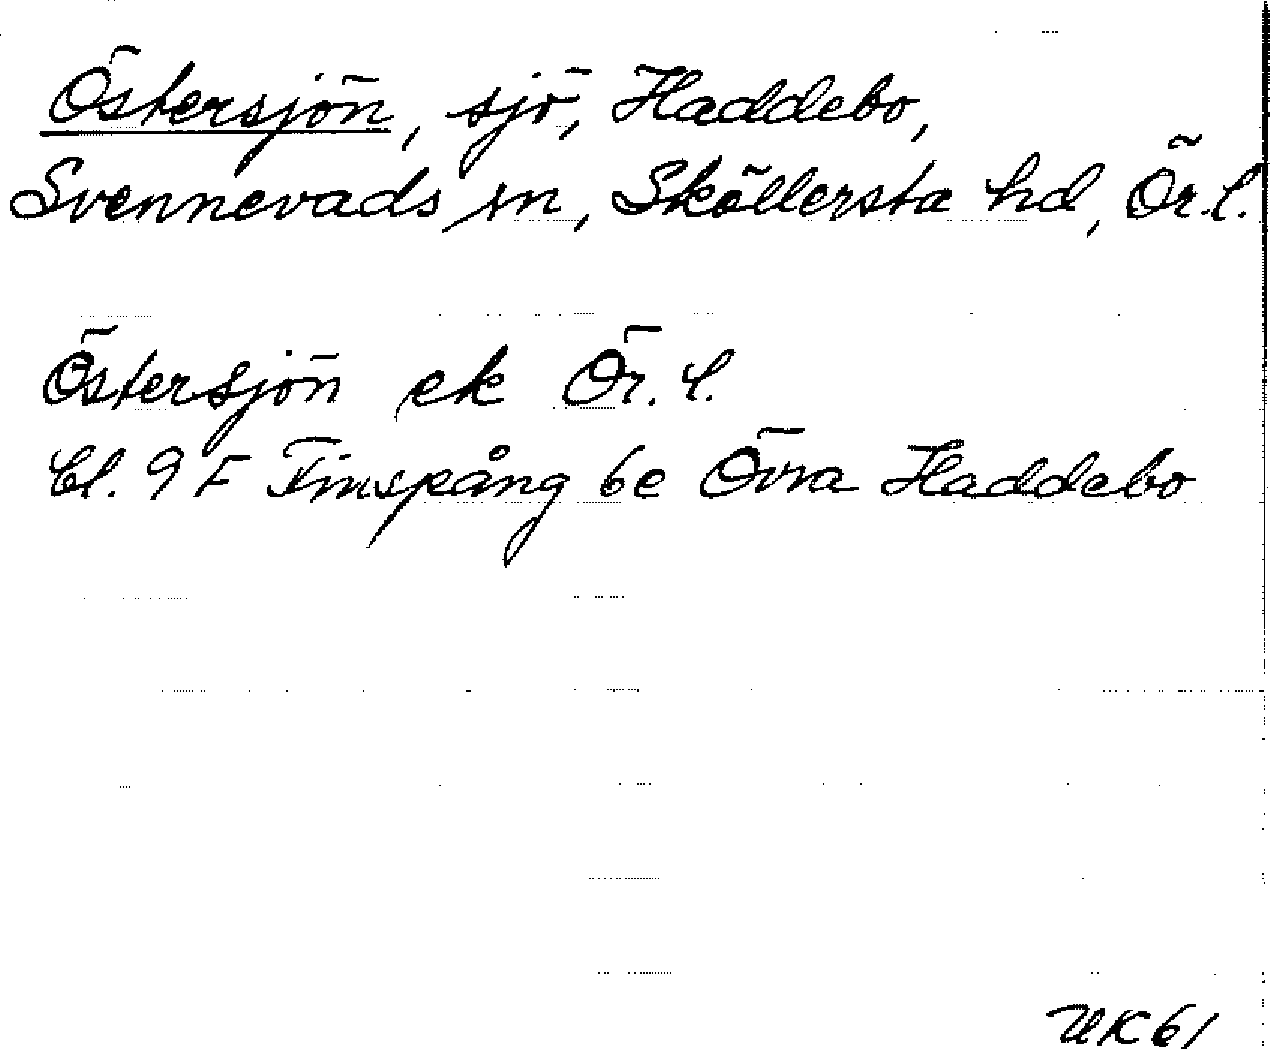 Östersjön, sjö, Haddebo,
Svennevads sn, Sköllersta hd, Ör.l.
Östersjön ek Ör. l.
Bl. 9 F Finspång 6e Övra Haddebo
UK61